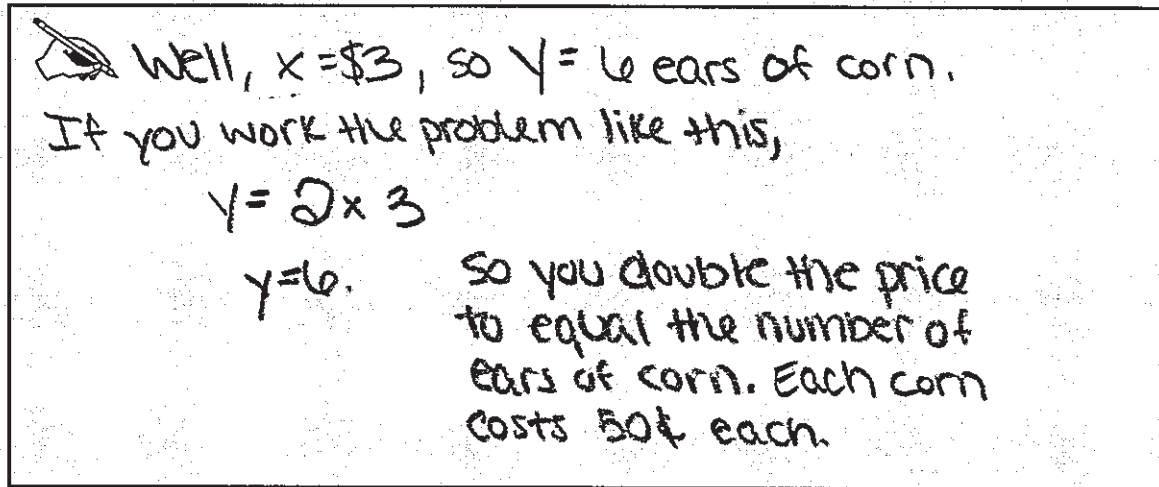 Well, x = $3, so Y = 6 ears of corn.
If you work the problem like this,
Y = 2 x 3
y = 6.
So you double the price
to equal the number of
ears of corn. Each corn
costs 50¢ each.